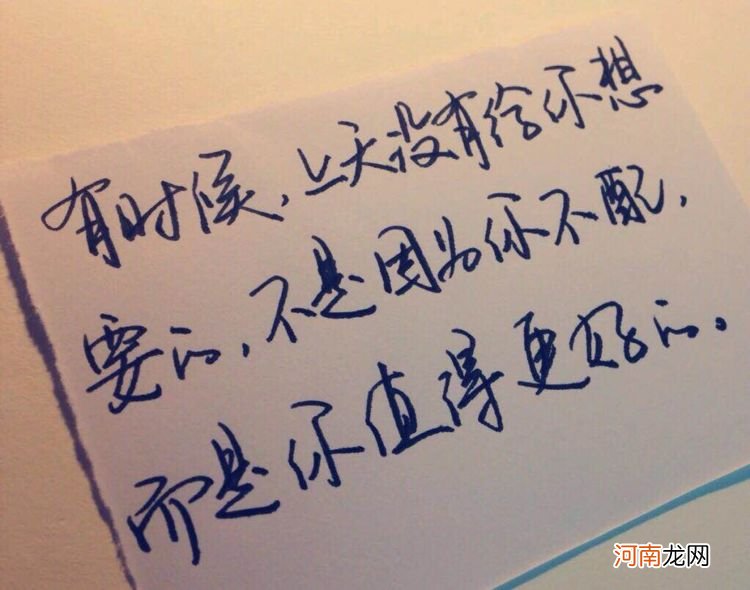 有时候,上天没有给你想
要的,不是因为你不配,
而是你值得更好的。
河南龙网